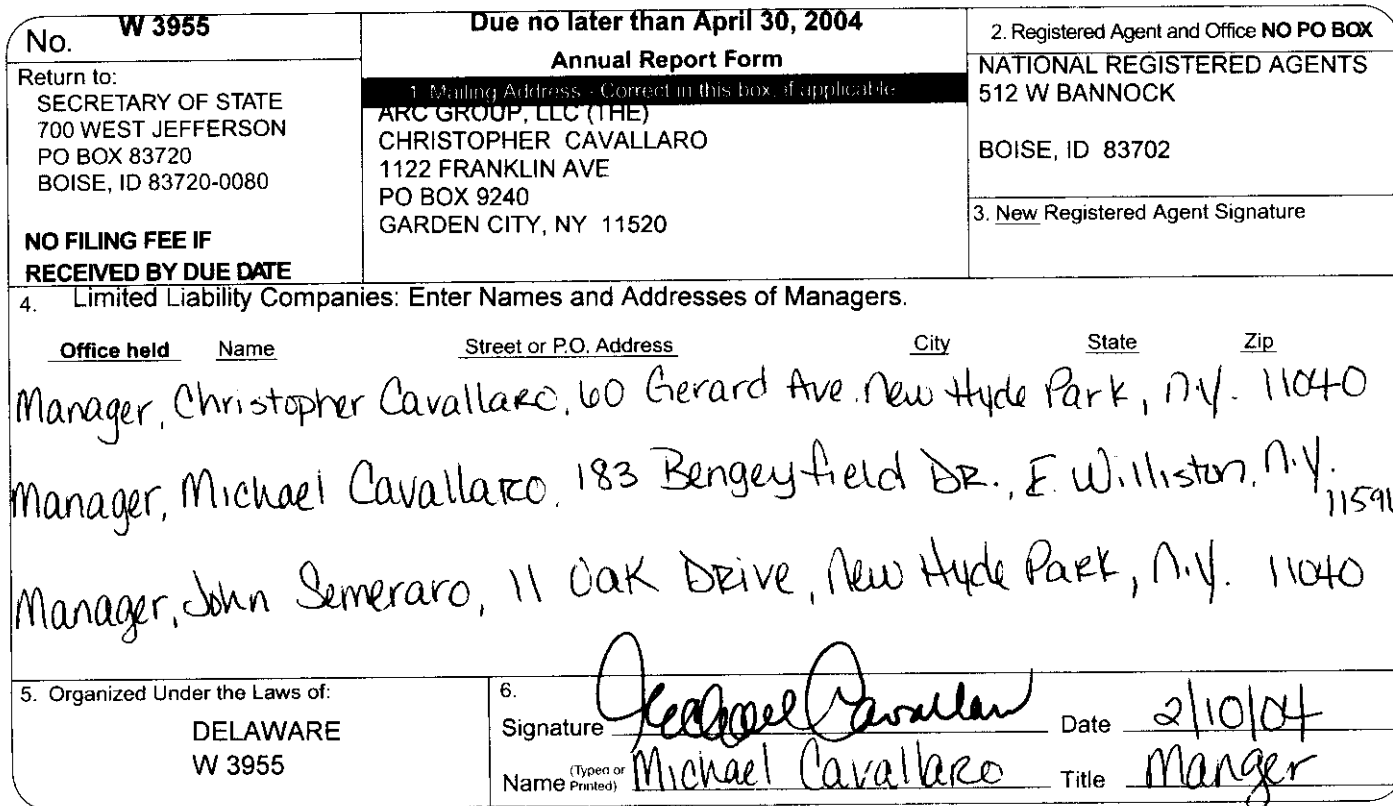 No. W 3955
Return to:
SECRETARY OF STATE
700 WEST JEFFERSON
PO BOX 83720
BOISE, ID 83720-0080
NO FILING FEE IF
RECEIVED BY DUE DATE
Due no later than April 30, 2004
Annual Report Form
1. Mailing Address - Correct in this box, if applicable
ARC GROUP, LLC (THE)
CHRISTOPHER CAVALLARO
1122 FRANKLIN AVE
PO BOX 9240
GARDEN CITY, NY 11520
2. Registered Agent and Office NO PO BOX
NATIONAL REGISTERED AGENTS
512 W BANNOCK
BOISE, ID 83702
3. New Registered Agent Signature
4. Limited Liability Companies: Enter Names and Addresses of Managers.
Office held Name Street or P.O. Address City State Zip
Manager, Christopher Cavallaro, 60 Gerard Ave. New Hyde Park, N.Y. 11040
Manager, Michael Cavallaro, 183 Bengeyfield DR., E. Williston, N.Y.
11596
Manager, John Semeraro, 11 Oak Drive, New Hyde Park, N.Y. 11040
5. Organized Under the Laws of:
DELAWARE
W 3955
6.
Signature Michael Cavallaro Date 2/10/04
Name (Typed or Printed) Michael Cavallaro Title Manger